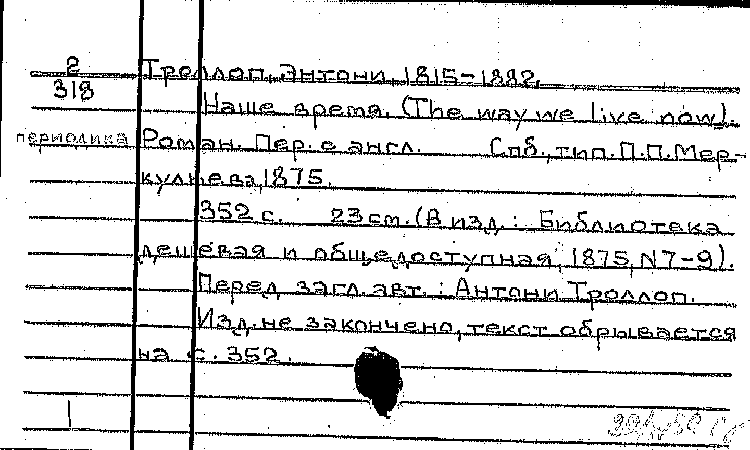 2
318
периодика
Троллоп, Энтони, 1815-1882.
Наше время. (The way we live now).
Роман. Пер. с англ. Спб., тип. П.П. Мер-
кульева, 1875.
352 с. 23 см. (В изд.: Библиотека
дешевая и общедоступная, 1875, N 7-9).
Перед загл. авт.: Антони Троллоп.
Изд. не закончено, текст обрывается
на с. 352.
1